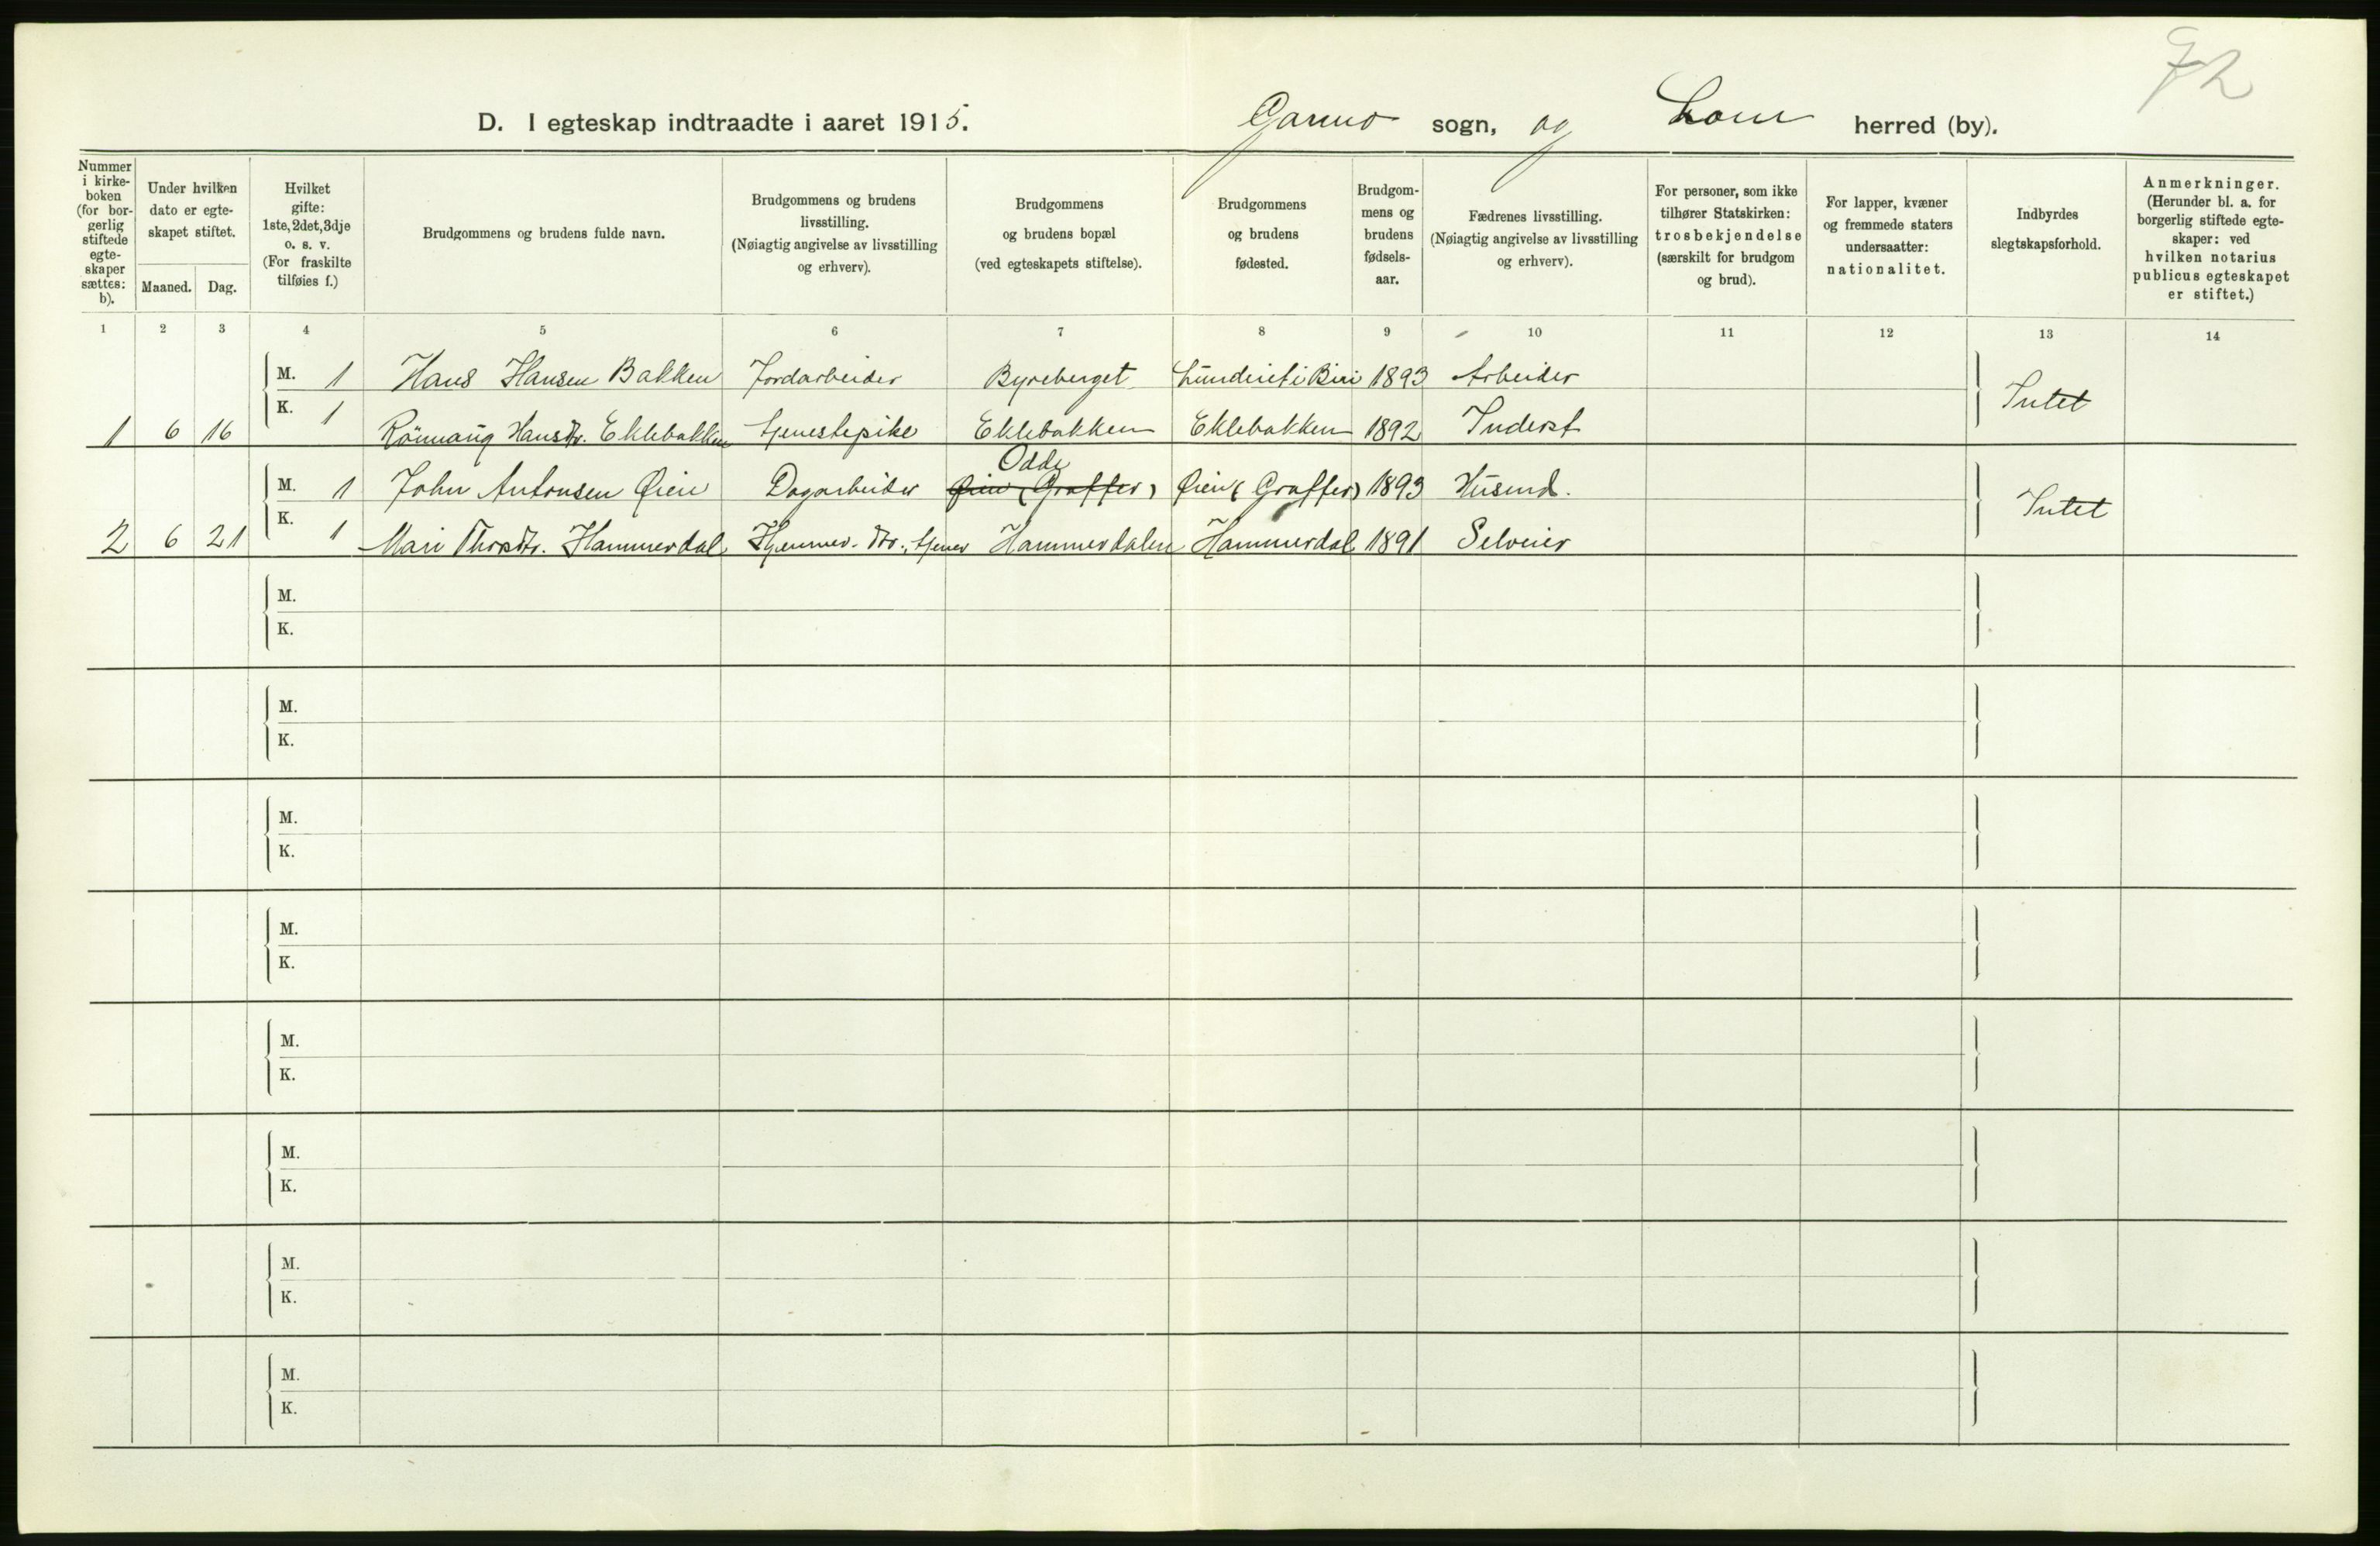 72
D. I egteskap indtraadte i aaret 1915. Garmo sogn, og Lom herred (by).
Nummer i kirkeboken (for borgerlig stiftede egteskaper sættes: b).
Under hvilken dato er egteskapet stiftet.
Maaned. Dag.
Hvilket gifte: 1ste, 2det, 3dje o. s. v. (For fraskilte tilføies f.)
Brudgommens og brudens fulde navn.
Brudgommens og brudens livsstilling. (Nøiagtig angivelse av livsstilling og erhverv).
Brudgommens og brudens bopæl (ved egteskapets stiftelse).
Brudgommens og brudens fødested.
Brudgommens og brudens fødselsaar.
Fædrenes livsstilling. (Nøiagtig angivelse av livsstilling og erhverv).
For personer, som ikke tilhører Statskirken: trosbekjendelse (særskilt for brudgom og brud).
For lapper, kvæner og fremmede staters undersaatter: nationalitet.
Indbyrdes slegtskapsforhold.
Anmerkninger. (Herunder bl. a. for borgerlig stiftede egteskaper: ved hvilken notarius publicus egteskapet er stiftet.)
1 2 3 4 5 6 7 8 9 10 11 12 13 14
M. 1 Hans Hansen Bakken Jordarbeider Byreberget i Biri 1893 Arbeider
1 6 16 K. 1 Rönnaug Hansdtr. Eklebakken tjenestepike Eklebakken Eklebakken 1892 Inderst Intet
Odde
M. 1 John Antonsen Øien Dagarbeider Øien (Graffer) Øien (Graffer) 1893 Husmd.
2 6 21 K. 1 Mari Thorsdtr. Hammerdal Hjemmev. dtr., tjener Hammerdalen Hammerdal 1891 Selveier Intet
M.
K.
M.
K.
M.
K.
M.
K.
M.
K.
M.
K.
M.
K.
M.
K.